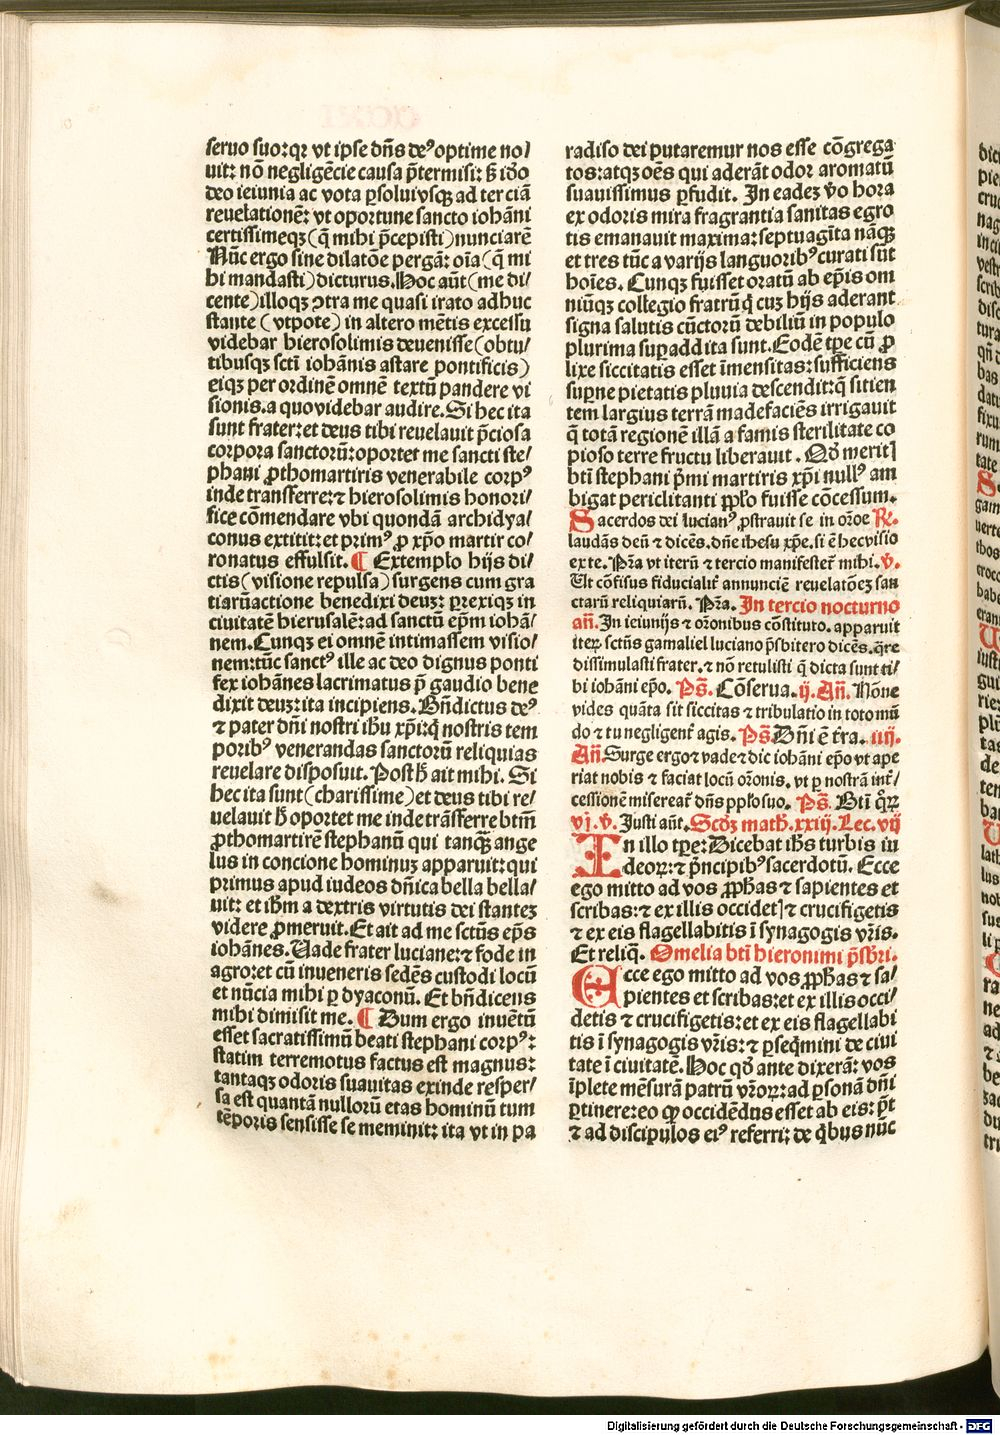 seruo suo:qꝛ vt ipse dñs deꝰ optime no/
uit: nō negligēcie causa p̄termisi: ß iđo
deo ieiunia ac vota ꝑsolui vsqꝫ ad terciā
reuelationē: vt oportune sancto iohāni
certissimeqꝫ (q̄ mihi p̄cepisti) nunciarē
Nūc ergo sine dilatōe pergā: oīa (q̄ mi
hi mandasti) dicturus. Hoc aūt (me di/
cente) illoqꝫ ↄtra me quasi irato adhuc
stante (vtpote) in altero mētis excessu
videbar hierosolimis deuenisse (obtu/
tibusqꝫ scti iohānis astare pontificis)
eiqꝫ per ordinē omnē textū pandere vi
sionis. a quo videbar audire. Si hec ita
sunt frater: et deus tibi reuelauit p̄ciosa
corpora sanctorū: oportet me sancti ste/
phani ꝓthomartiris venerabile corpꝰ
inde transferre: ⁊ hierosolimis honori/
fice cōmendare vbi quondā archidya/
conus extitit: et primꝰ ꝓ xp̄o martir co/
ronatus effulsit. ¶ Extemplo hijs di/
ctis (visione repulsa) surgens cum gra
tiarū actione benedixi deuꝫ: ꝑrexiqꝫ in
ciuitatē hierusalē: ad sanctū ep̄m iohā/
nem. Cunqꝫ ei omnē intimassem visio/
nem: tūc sanctꝰ ille ac deo dignus ponti
fex iohānes lacrimatus p̄ gaudio bene
dixit deuꝫ: ita incipiens. Bn̄dictus deꝰ
⁊ pater dñi nostri ihū xp̄i: q̇ nostris tem
poribꝰ venerandas sanctorū reliquias
reuelare disposuit. Post ħ ait mihi. Si
hec ita sunt (charissime) et deus tibi re/
uelauit ħ oportet me inde trāsferre btm̄
ꝓthomartirē stephanū qui tanqꝫ̄ ange
lus in concione hominuꝫ apparuit: qui
primus apud iudeos dñica bella bella/
uit: et ihm̄ a dextris virtutis dei stanteꝫ
videre ꝓmeruit. Et ait ad me sctūs ep̄s
iohānes. Uade frater luciane: ⁊ fode in
agro: et cū inueneris sedēs custodi locū
et nūcia mihi ꝑ dyaconū. Et bn̄dicens
mihi dimisit me. ¶ Dum ergo inuētū
esset sacratissimū beati stephani corpꝰ:
statim terremotus factus est magnus:
tantaqꝫ odoris suauitas exinde resper/
sa est quantā nullorū etas hominū tum
tēporis sensisse se meminit: ita vt in pa
radiso dei putaremur nos esse cōgrega
tos: atqꝫ oēs qui aderāt odor aromatū
suauissimus ꝑfudit. In eadeꝫ v̄o hora
ex odoris mira fragrantia sanitas egro
tis emanauit maxima: septuagīta nāqꝫ
et tres tūc a varijs languoribꝰ curati sūt
hoīes. Cunqꝫ fuisset oratū ab ep̄is om
niūqꝫ collegio fratrū q̇ cuꝫ hijs aderant
signa salutis cūctorū debiliū in populo
plurima suꝑaddita sunt. Eodē tꝑe cū ꝓ
lixe siccitatis esset īmensitas: sufficiens
suꝑne pietatis pluuia descendit: q̇ sitien
tem largius terrā madefaciēs irrigauit
q̄ totā regionē illā a famis sterilitate co
pioso terre fructu liberauit. Qđ meritꝭ
btī stephani p̄mi martiris xp̄i nullꝰ am
bigat periclitanti ꝓpl̄o fuisse cōcessum.
Sacerdos dei lucianꝰ ꝓstrauit se in orōe R̄.
laudās deū ⁊ dicēs. dñe ihesu xp̄e. si ē hec visio
ex te. P̄ra vt iterū ⁊ tercio manifestet̄ mihi. v̄.
Ut cōfisus fiducialit̄ annunciē reuelatōeꝫ san
ctarū reliquiarū. P̄ra. In tercio nocturno
an̄. In ieiunijs ⁊ orōnibus cōstituto. apparuit
iteꝝ sctūs gamaliel luciano p̄sbitero dicēs. q̄re
dissimulasti frater. ⁊ nō retulisti q̄ dicta sunt ti/
bi iohāni ep̄o. Ps̄. Cōserua. ij. An̄. Nōne
vides quāta sit siccitas ⁊ tribulatio in toto mū
do ⁊ tu negligent̄ agis. Ps̄. Dñi ē t̄ra. iij.
An̄. Surge ergo ⁊ vade ⁊ dic iohāni ep̄o vt ape
riat nobis ⁊ faciat locū orōnis. vt ꝑ nostrā int̄/
cessionē misereat̄ dñs ppl̄o suo. Ps̄. Btī q̇ꝝ
vj. v̄. Justi aūt. Scđꝫ math. xxiij. Lec. vij
In illo tꝑe: Dicebat ihs̄ turbis iu
deoꝝ: ⁊ p̄ncipibꝰ sacerdotū. Ecce
ego mitto ad vos ꝓph̄as ⁊ sapientes et
scribas: ⁊ ex illis occidetꝭ ⁊ crucifigetis
⁊ ex eis flagellabitis ī synagogis vr̄is.
Et reliq̄. Omelia btī hieronimi p̄sbr̄i.
Ecce ego mitto ad vos ꝓph̄as ⁊ sa/
pientes et scribas: et ex illis occi/
detis ⁊ crucifigetis: et ex eis flagellabi
tis ī synagogis vr̄is: ⁊ ꝑseq̄mini de ciui
tate ī ciuitatē. Hoc qđ ante dixerā: vos
īplete mēsurā patrū vr̄oꝝ: ad ꝑsonā dñi
ꝑtinere: eo ꝙ occidēdus esset ab eis: p̄t
⁊ ad discipulos eiꝰ referri: de q̇bus nūc
Digitalisierung gefördert durch die Deutsche Forschungsgemeinschaft - DFG